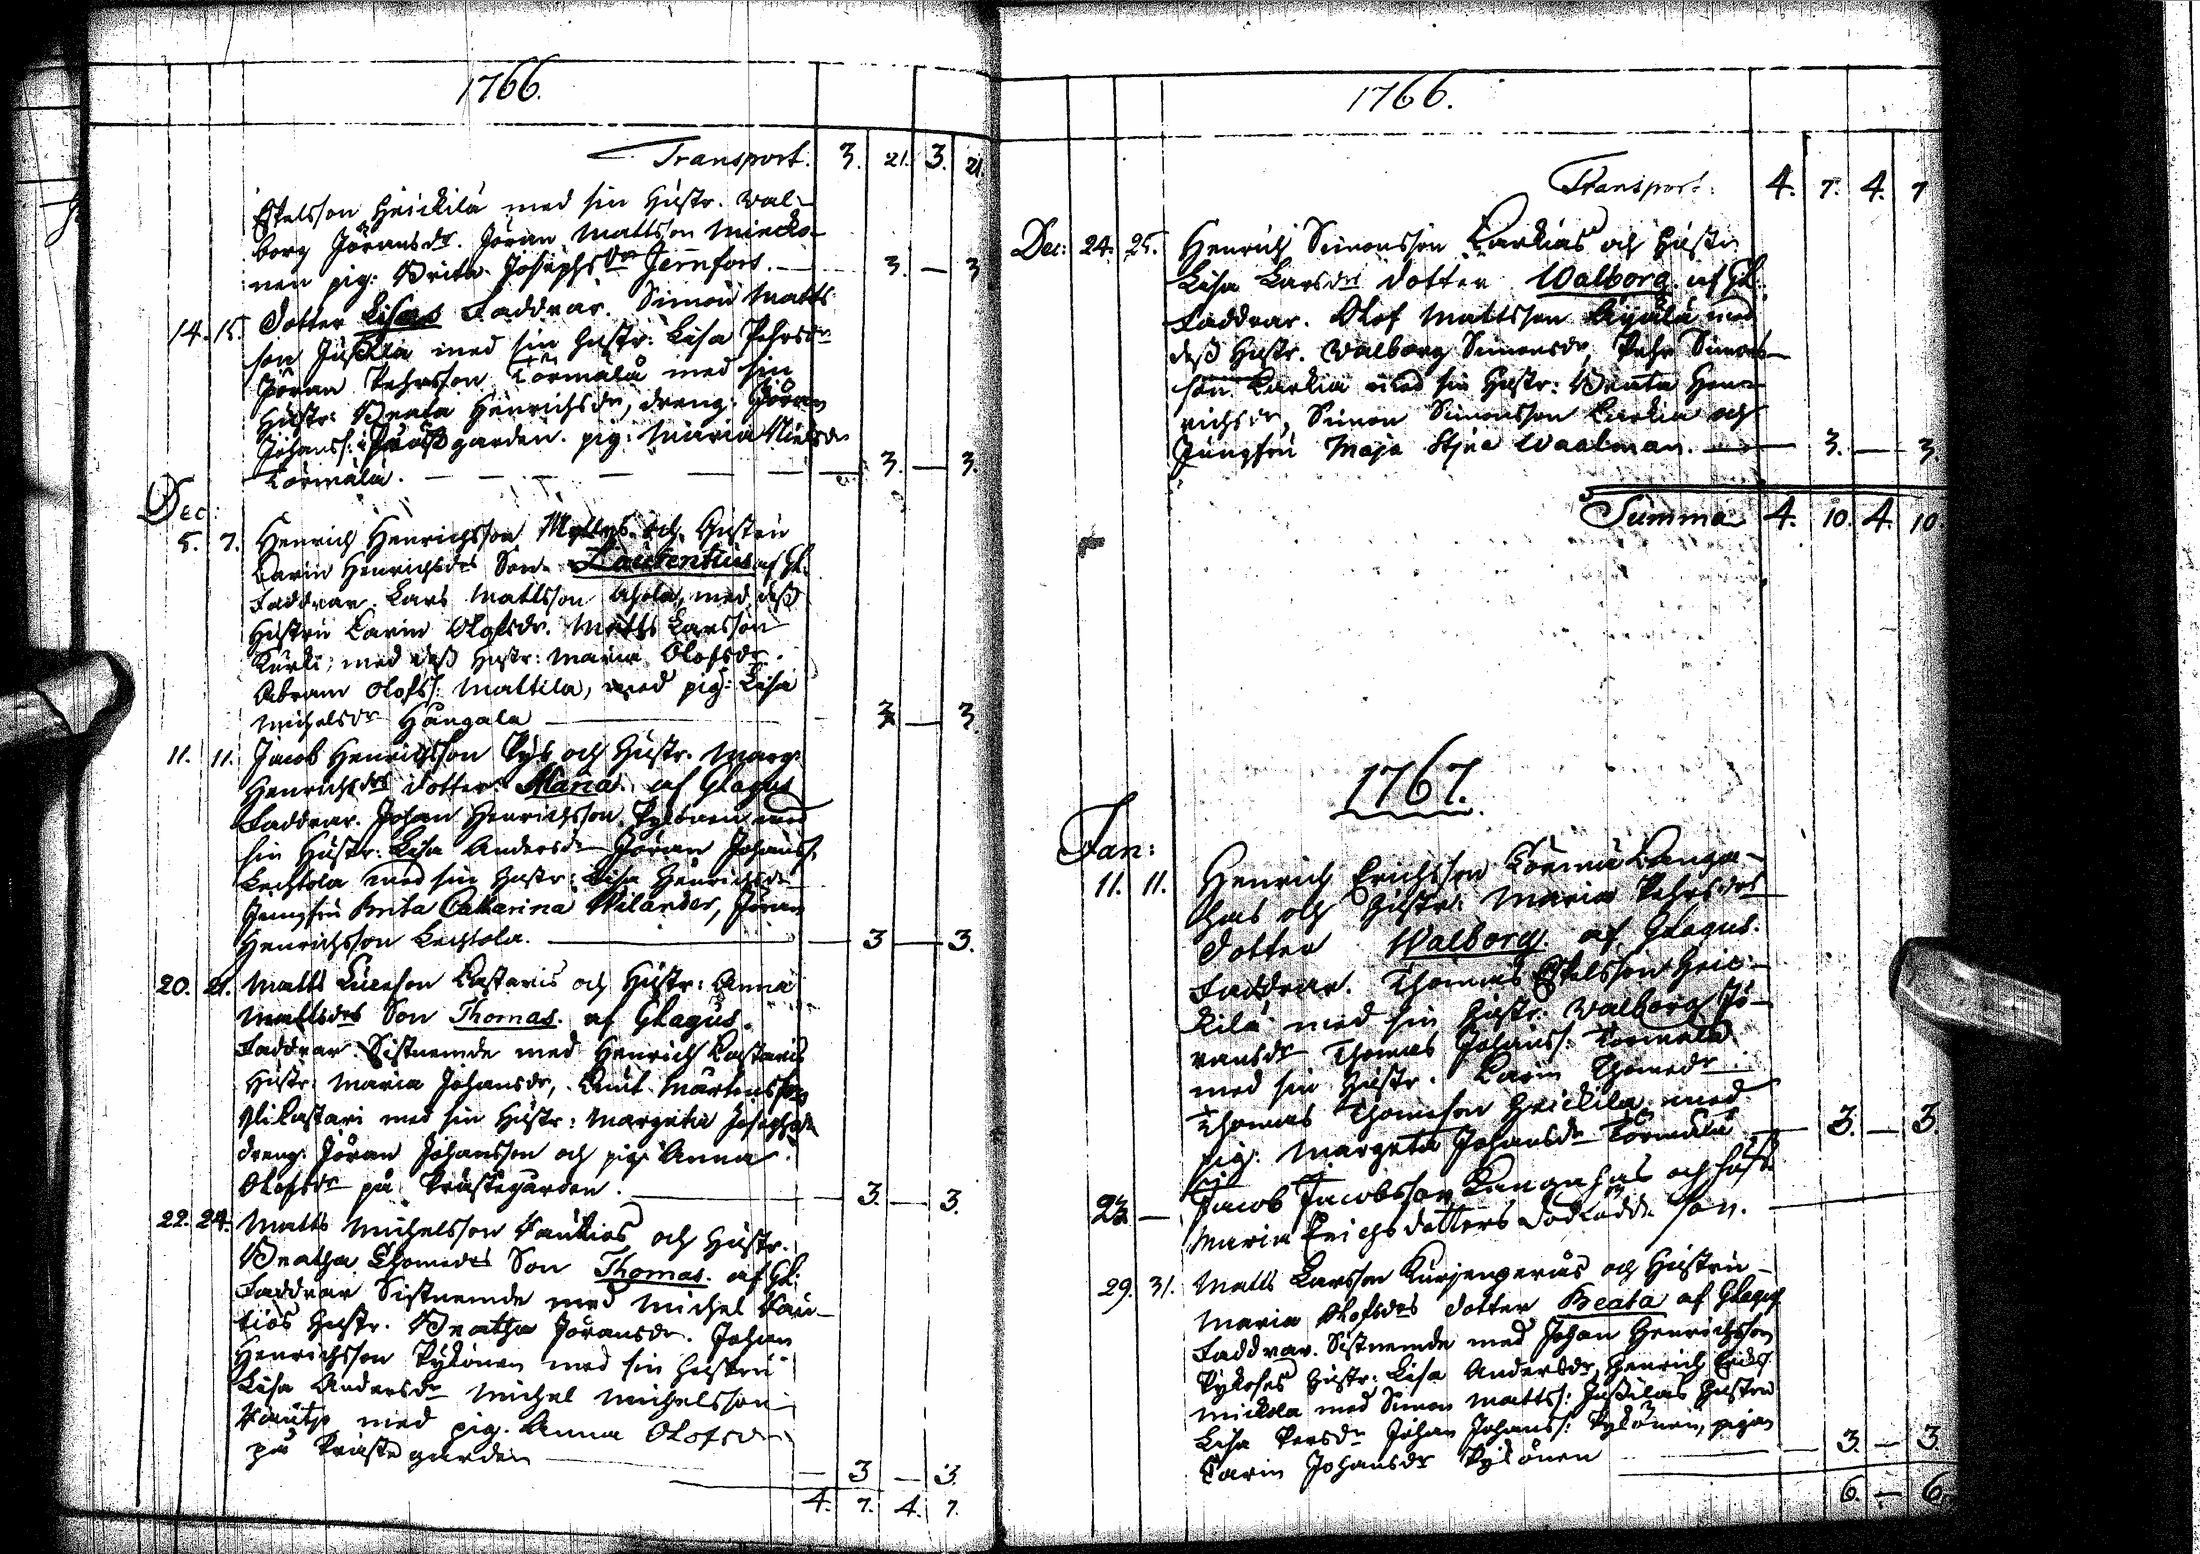 1766.
Transport. 3. 21. 3. 21.
Eskelsson Heickilä med sin Hustr. Wal-
borg Jöransdr. Jöran Mattsson Miecko-
nen pig: Brita Josephsdr Jernfors. 3. — 3
14. 15. Dotter Lisa Faddrar. Simon Matts
son Jussila med sin Hustr: Lisa Pehrsdr
Jöran Pehrsson Törmälä med sin
Hustr: Beata Henrichsdr, dreng: Jöran
Johanss: Prästgården. pig: Maria Nielsdr
Törmälä. 3. — 3.
Dec:
5. 7. Henrich Henrichsson Myllys och Hustru
Carin Henrichsdrs Son Laurentius af Gl.
Faddrar. Lars Mattsson Ahola, med dess
Hustru Carin Olofsdr. Matts Larsson
Kurki, med dess Hustr: Maria Olofsdr.
Abram Olofss: Mattila, med pig: Lisa
Michelsdr Hangala 3. — 3.
11. 11. Jacob Henrichsson och Hustr. Marg.
Henrichsdrs Dotter Maria af Glagus
Faddrar. Johan Henrichsson Pykönen med
sin Hustr: Lisa Andersdr Jöran Johanss.
Lechtola med sin Hustr: Lisa Henrichsdr
Jungfru Brita Catharina Wilander, Jöran
Henrichsson Lechtola. 3 — 3.
20. 21. Matts Lucesson Kastaris och Hustr: Anna
Mattsdrs Son Thomas. af Glagus.
Faddrar. Sistnemde med Henrich Kastaris
Hustr. Maria Johansdr, Knut Mårtensson
Ylikastari med sin Hustr: Margeta Josephsdr
dreng: Jöran Johansson och pig: Anna
Olofsdr på Prästegården. 3 — 3.
22. 24. Matts Michelsson Kautios och Hustr.
Beatha Thomedrs Son Thomas. af Gl:
Faddrar Sistnemde med Michel Kau-
tios Hustr. Beatha Jöransdr. Johan
Henrichsson Pykönen med sin Hustru
Lisa Andersdr Michel Michelsson
Kautjo med pig. Anna Olofsdr
på Prästegården — 3 — 3.
4. 7. 4. 7.
1766.
Transport. 4. 7. 4. 7
Dec: 24. 25. Henrich Simonsson Karkias och Hustru
Lisa Larsdrs Dotter Walborg. af Gl:
Faddrar. Olof Mattsson med
dess Hustr. Walborg Simonsdr, Pehr Simons-
son Karkia med sin Hustr: Beata Hen-
richsdr, Simon Simonsson Karkia och
Jungfru Maja Stina Waalman. — 3. — 3.
Summa 4. 10. 4. 10
1767.
Jan:
11. 11. Henrich Erichsson Törmä Kanga-
has och Hustr: Maria Pehrsdrs
Dotter Walborg. af Glagus.
Faddrar. Thomas Eskelsson Heic-
kilä med sin Hustr: Walborg Jö-
ransdr Thomas Johanss: Törmälä
med sin Hustr. Karin Thomedr.
Thomas Thomeson Heickilä med
pig. Margeta Johansdr Törmälä — 3. — 3.
23. — Jacob Jacobsson Kangahas och Hust.
Maria Erichsdotters dödfödde Son.
29. 31. Matts Larsson Kurjenperäs och Hustru
Maria Olofsdrs Dotter Beata af Glagus
Faddrar. Sistnemde med Johan Henrichsson
Pykoses Hustr: Lisa Andersdr, Henrich Erickss:
Mickola med Simon Mattss: Jussilas Hustru
Lisa Persdr Johan Johanss: Pykönen, pigan
Carin Johansdr Pykönen — 3. — 3.
6. — 6.